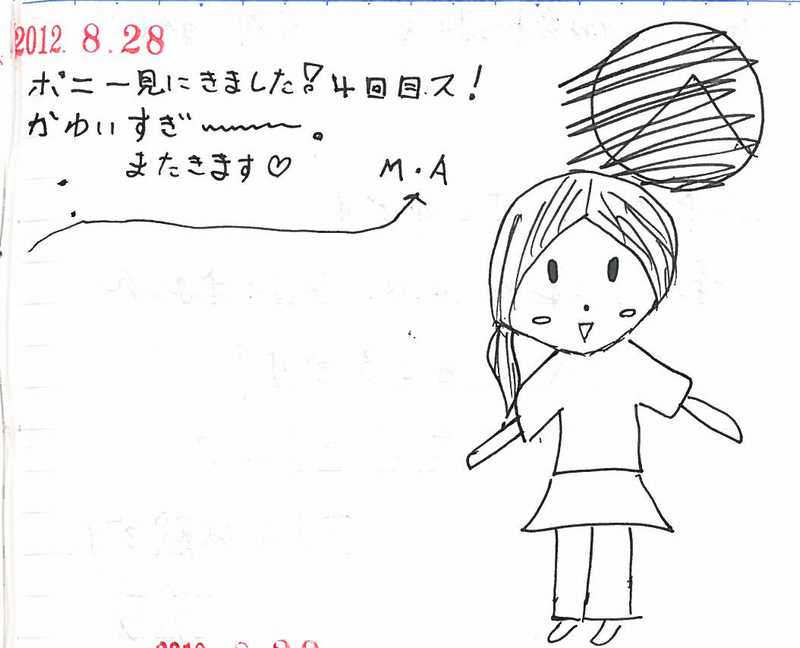 2012.8.28
ポニー見にきました!4回目ス!
かわいすぎ〰。
またきます♡ M・A